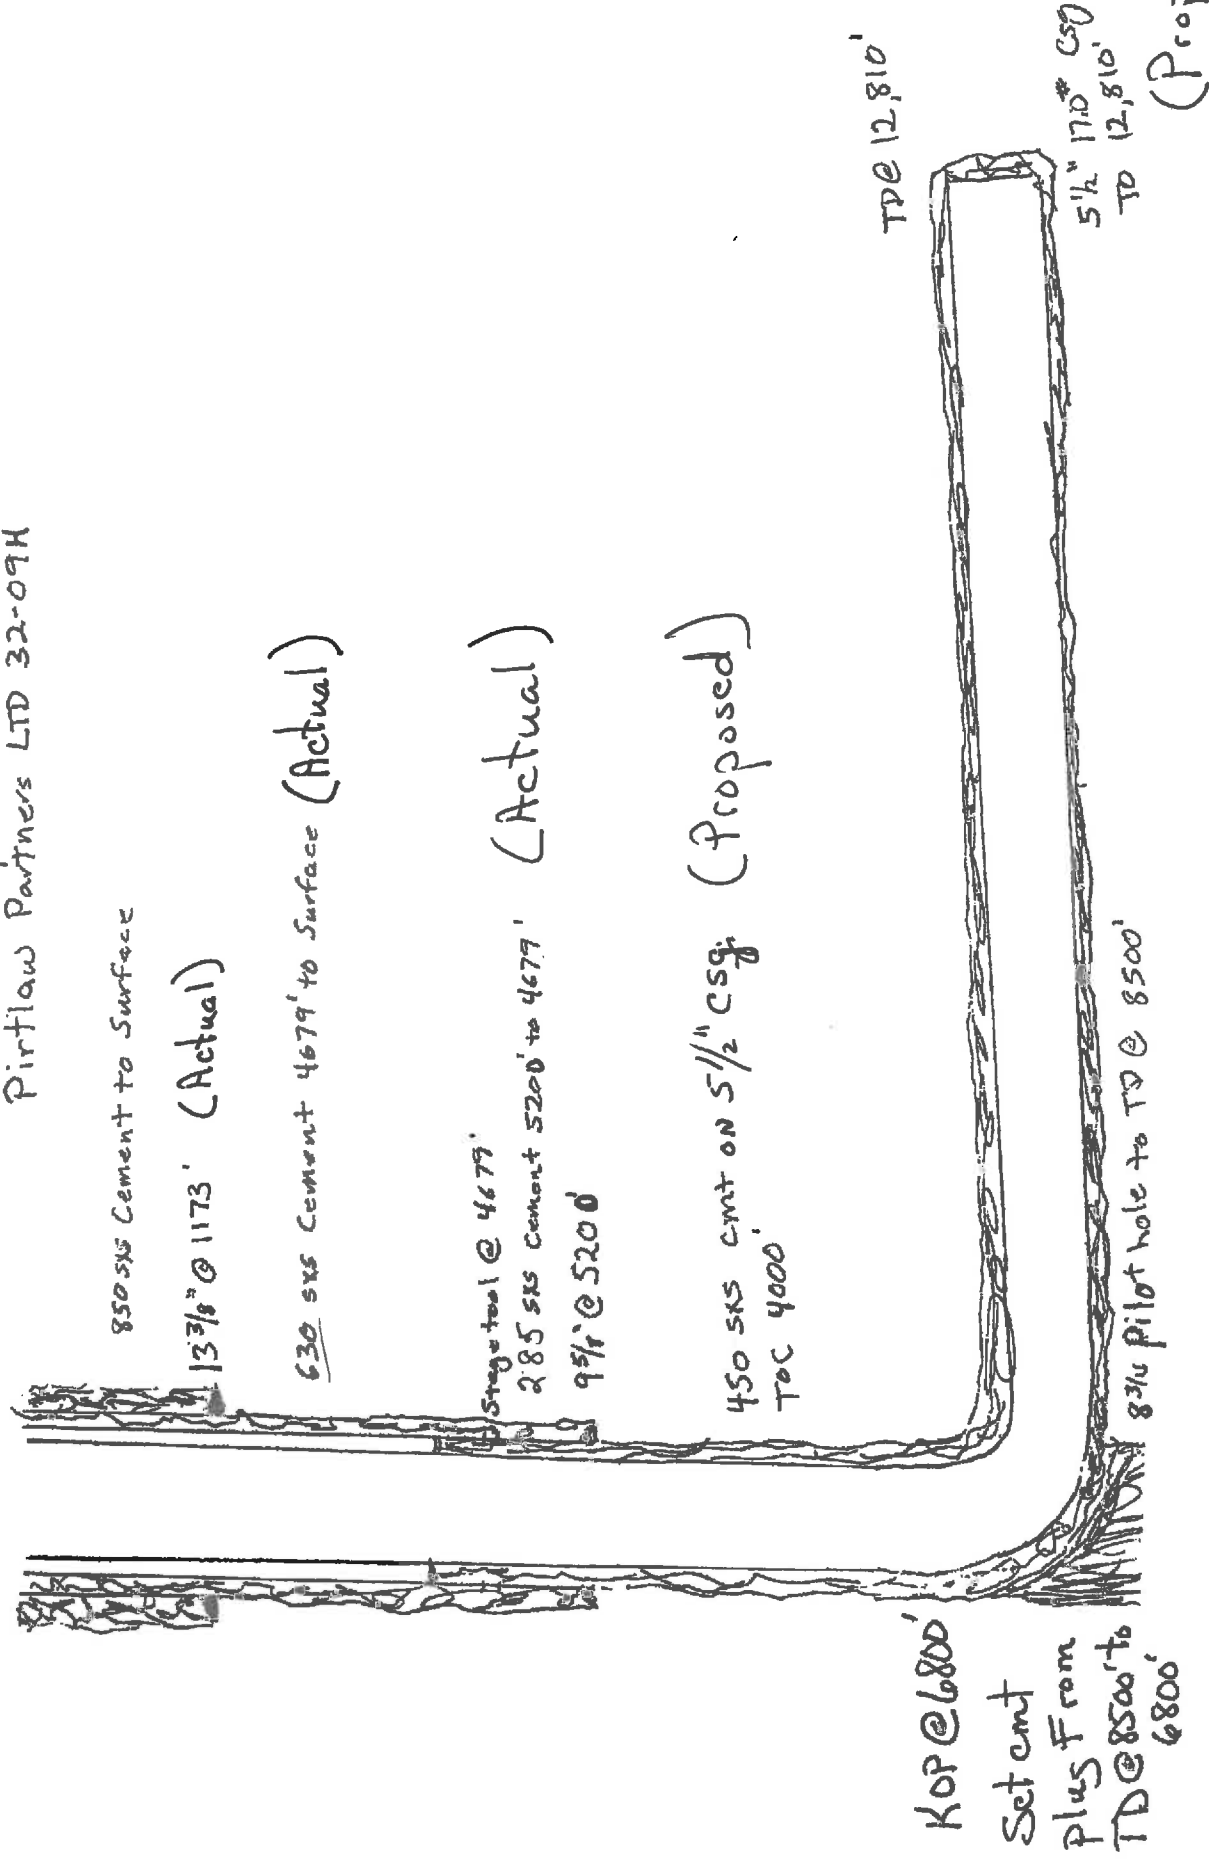 Pirtlaw Partners LTD 32-09H
850 sxs Cement to Surface
13 3/8" @ 1173' (Actual)
630 sxs Cement 4679' to Surface (Actual)
Stage tool @ 4679'
285 sxs cement 5200' to 4679' (Actual)
9 5/8" @ 5200'
450 sxs cmt on 5 1/2" csg. (Proposed)
TOC 4000'
TD @ 12,810'
5 1/2" 17.0# csg
TD 12,810'
8 3/4 Pilot hole to TD @ 8500'
KOP @ 6800'
Set cmt
Plug From
TD @ 8500' to
6800'